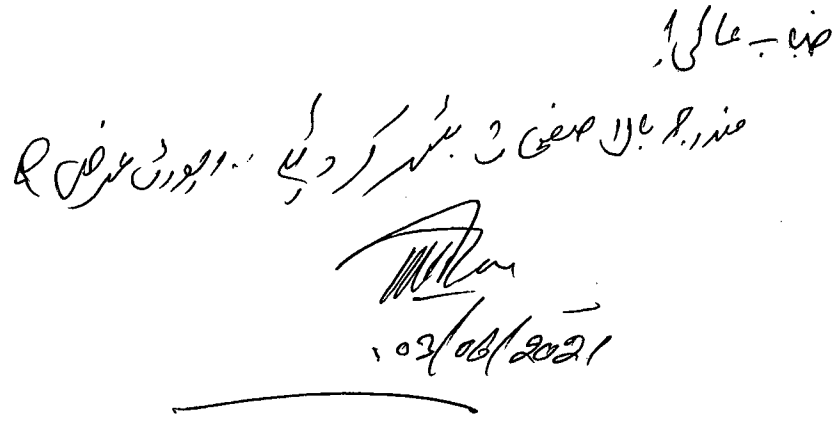 جناب عالی!
مندرجہ بالا صفحات بلنڈر کر دئیے .. رپورٹ عرض ہے
03/06/2021